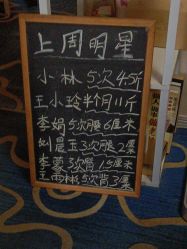 上周明星
小林5次4.5斤
王小玲半个月11斤
李娟5次腰6厘米
刘晨玉3次腿2厘
李蓉3次臂1.5厘米
王雨彬5次背3厘